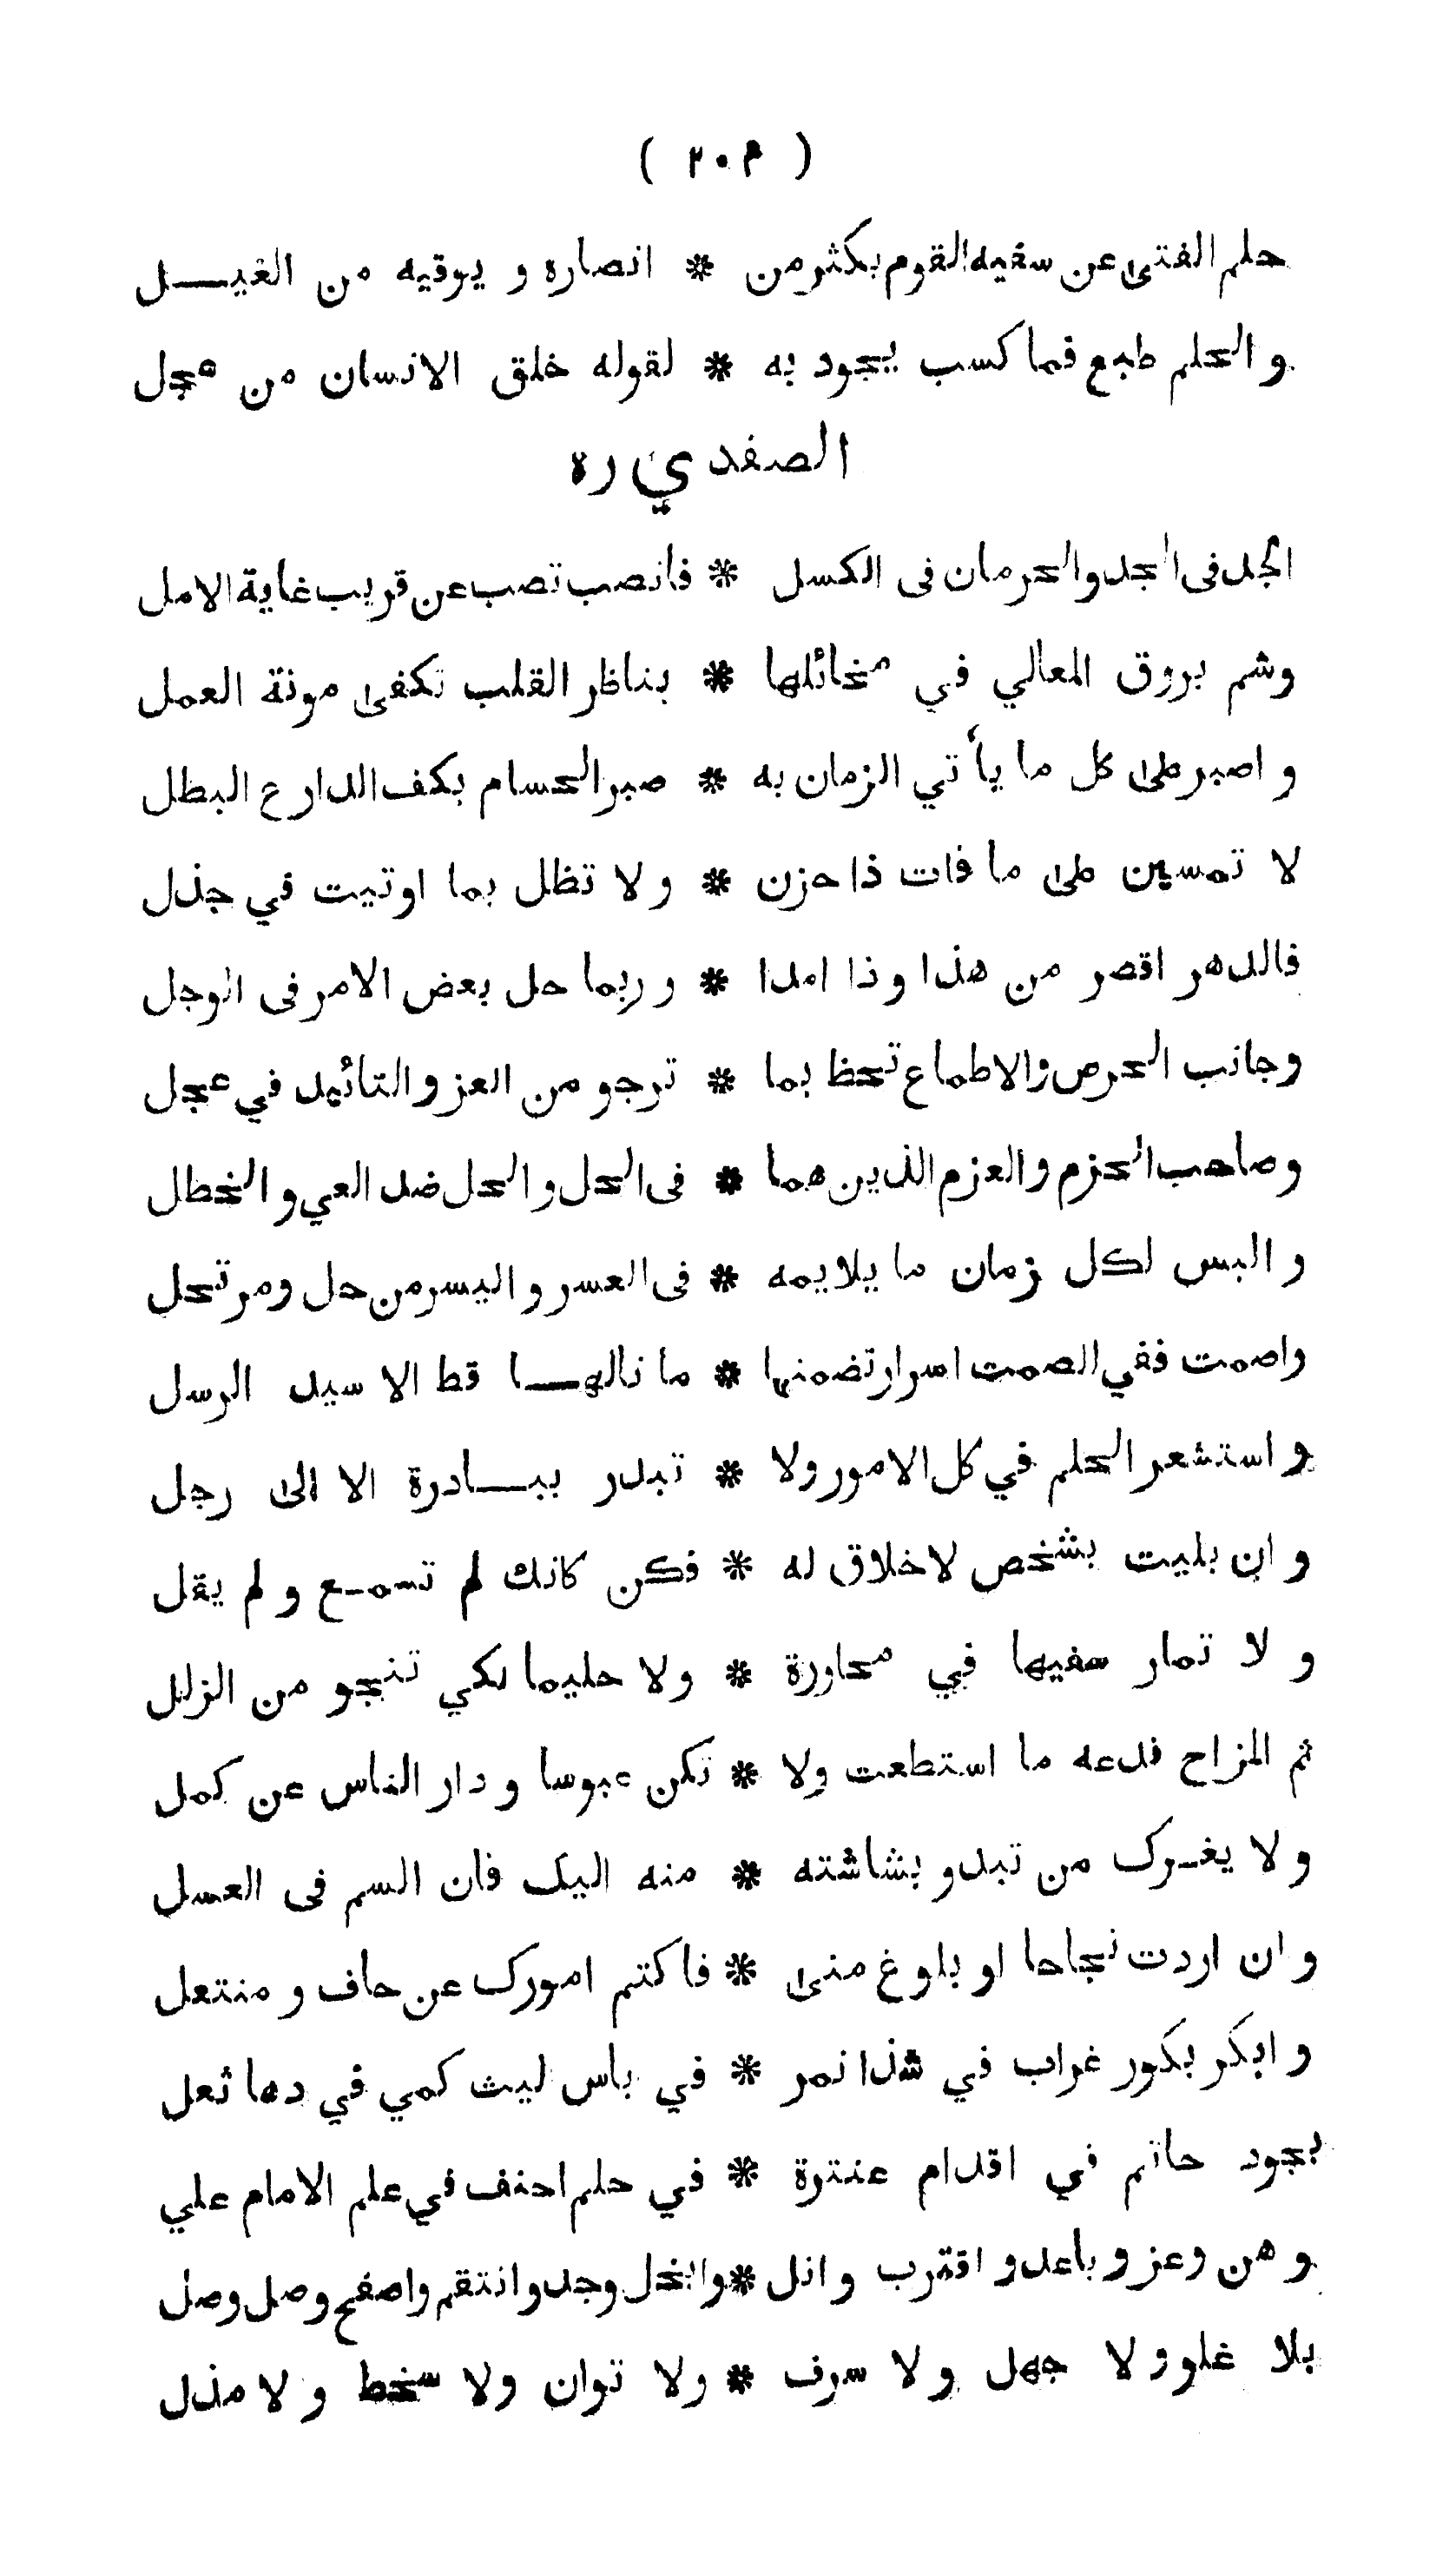 ( ٢٠٤ )
حلم الفتى عن سفيه القوم بكثر من * انصاره و يوقيه من الغيل
و الحلم طبع فما كسب يجود به * لقوله خلق الانسان من عجل
الصفدي ره
الجد فى الجد والحرمان فى الكسل * فانصب تصب عن قريب غاية الامل
وشم بروق المعالي في مخائلها * بناظر القلب تكفى مونة العمل
و اصبر على كل ما يأتي الزمان به * صبر الحسام بكف الدارع البطل
لا تمسين على ما فات ذا حزن * و لا تظل بما اوتيت في جذل
فالدهر اقصر من هذا و ذا امدا * و ربما حل بعض الامر فى الوجل
وجانب الحرص والاطماع تحظ بما * ترجو من العز و التائيد في عجل
وصاحب الحزم و العزم الذين هما * فى الحل و الحل ضد العي و الخطال
و البس لكل زمان ما يلايمه * فى العسر و اليسر من حل ومرتحل
واصمت ففي الصمت اسرار تضمنها * ما نالهــا قط الا سيد الرسل
و استشعر الحلم في كل الامور ولا * تبدر ببــادرة الا الى رجل
و ان بليت بشخص لا خلاق له * فكن كانك لم تسمـع و لم يقل
و لا تمار سفيها في محاورة * ولا حليما لكي تنجو من الزلل
ثم المزاح فدعه ما استطعت ولا * تكن عبوسا و دار الناس عن كمل
و لا يغـرك من تبدو بشاشته * منه اليك فان السم فى العسل
و ان اردت نجاحا او بلوغ منى * فاكتم امورك عن حاف و منتعل
و ابكر بكور غراب في شذا نمر * في باس ليث كمي في دها ثعل
بجود حاتم في اقدام عنترة * في حلم احنف في علم الامام علي
و هن وعز و باعد و اقترب و انل * و ابخل وجد و انتقم واصفح وصل وصل
بلا غلو و لا جهل و لا سرف * ولا توان ولا سخط و لا مذل